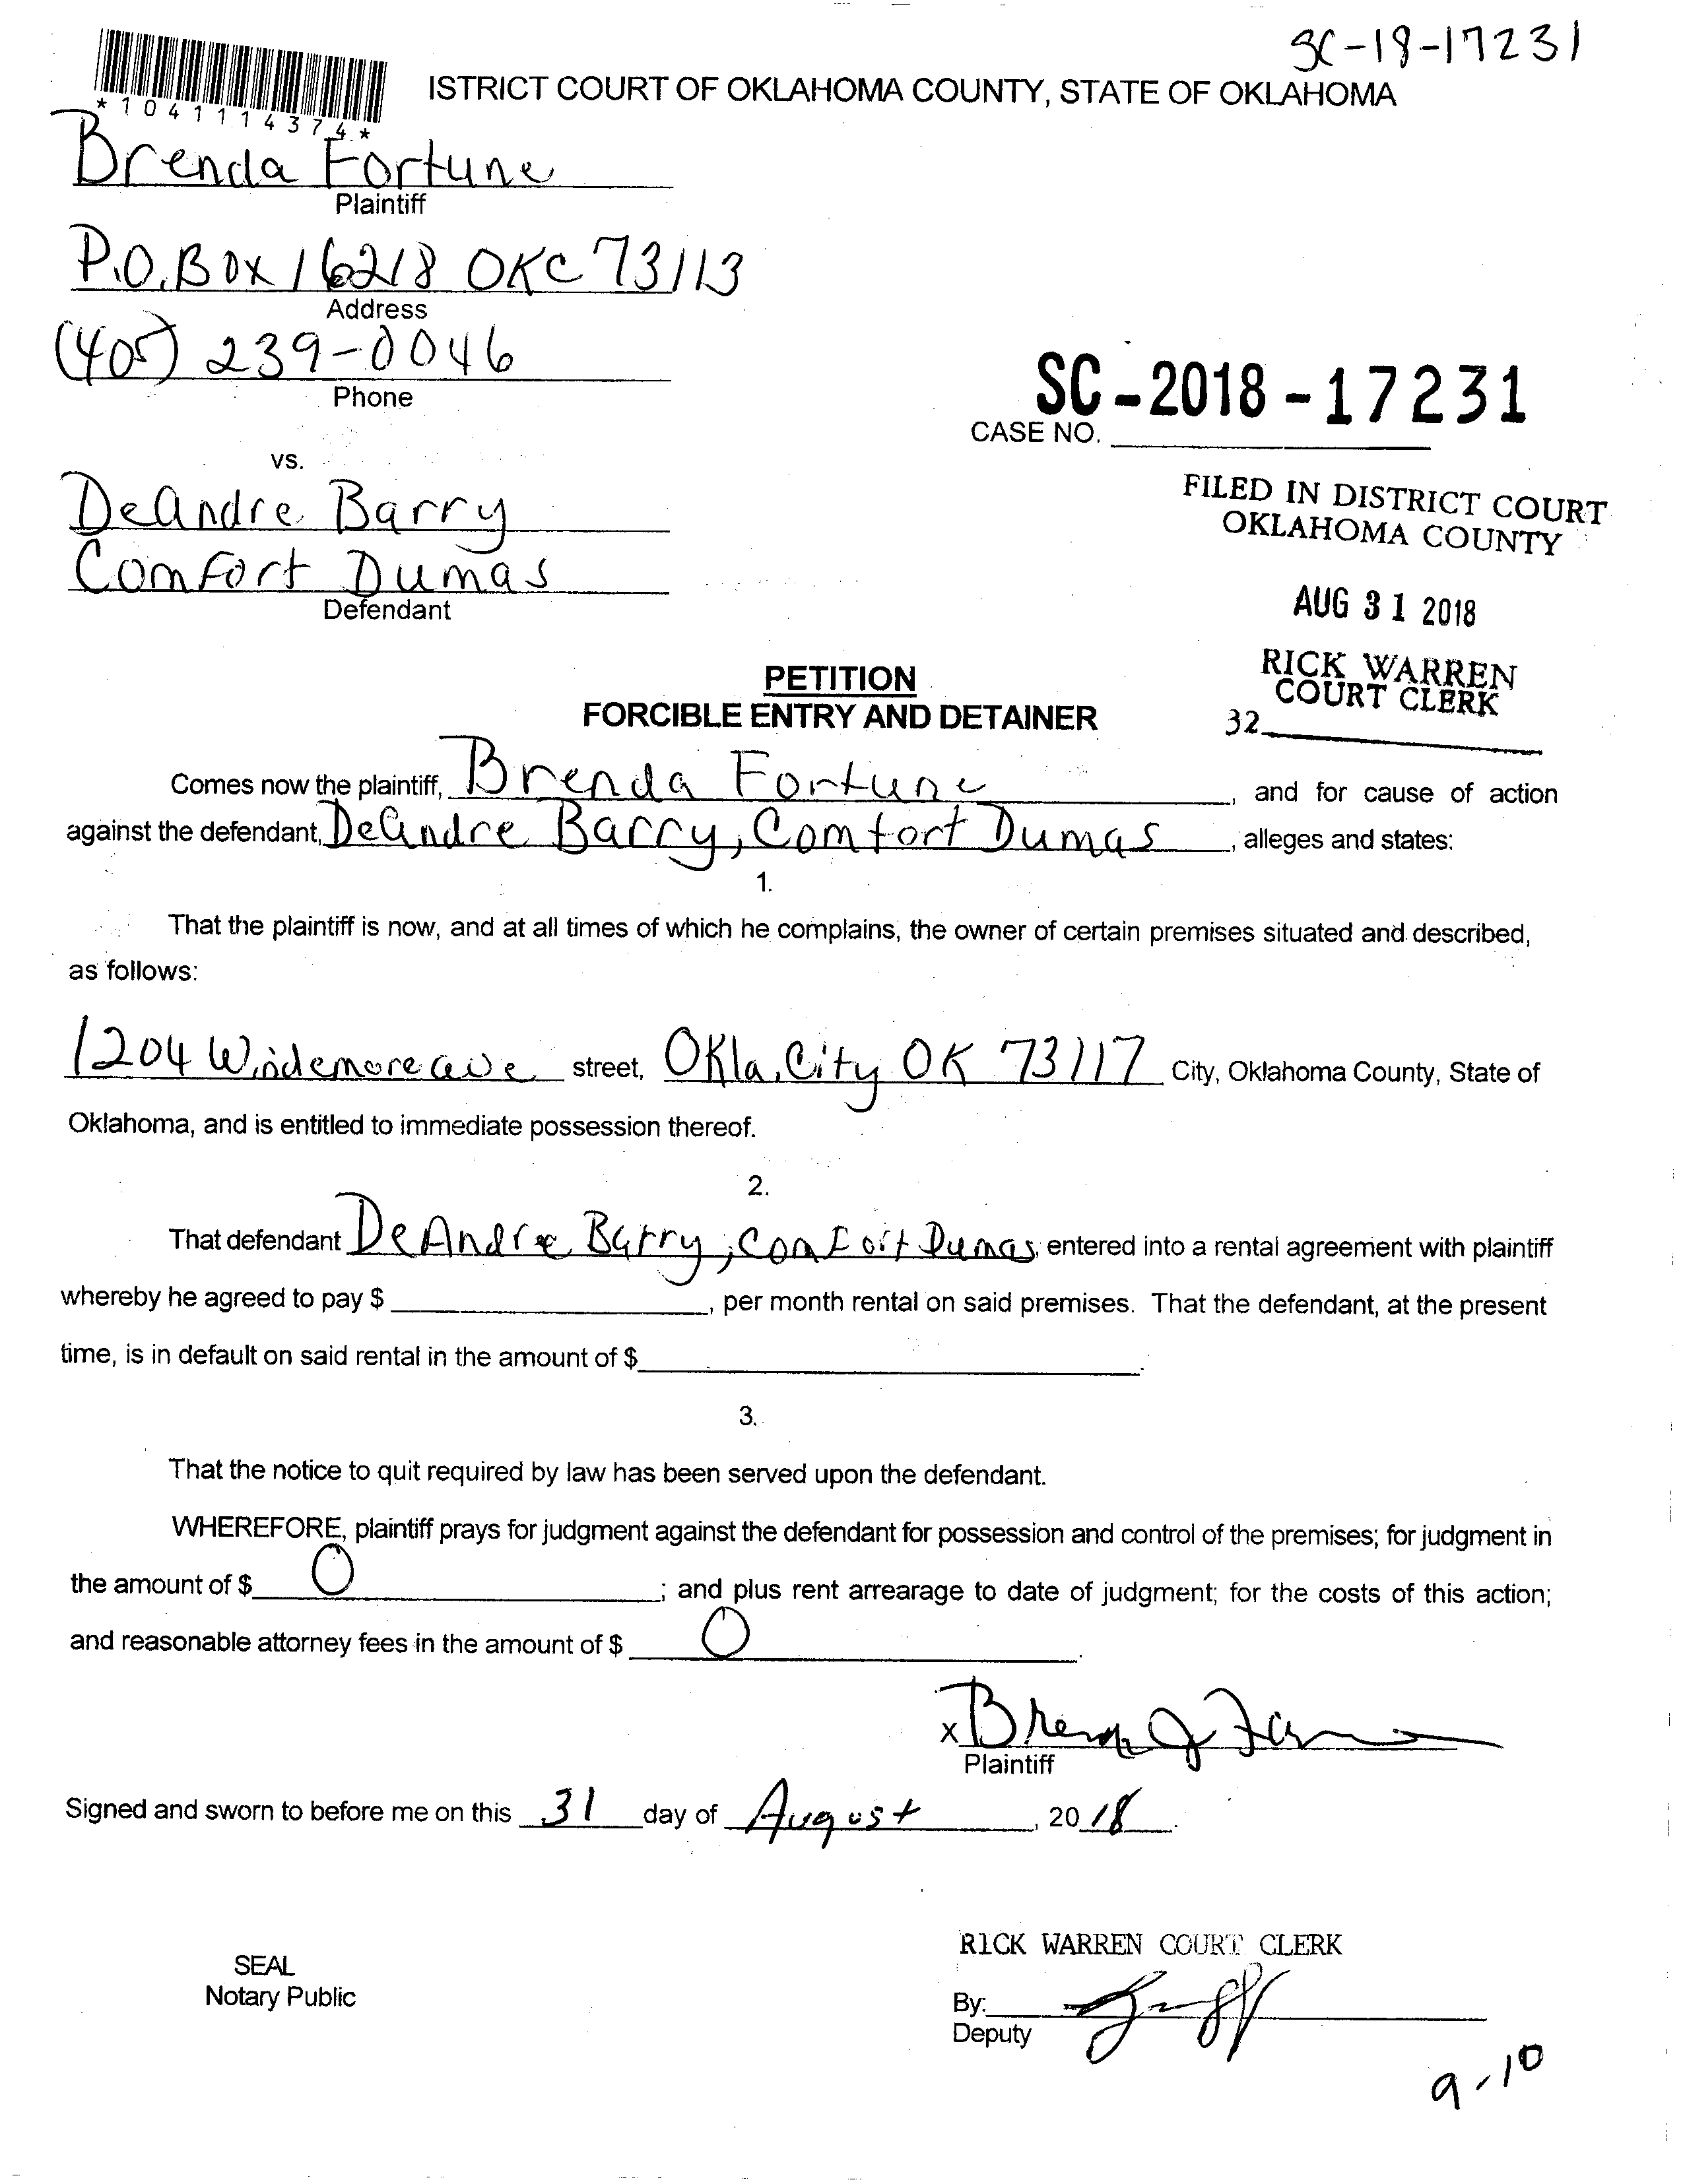 SC-18-17231
*1041114374*
ISTRICT COURT OF OKLAHOMA COUNTY, STATE OF OKLAHOMA
Brenda Fortune
Plaintiff
P.O. Box 16218 OKC 73113
Address
(405) 239-0046
Phone
SC-2018-17231
CASE NO.
vs.
DeAndre Barry
Comfort Dumas
Defendant
FILED IN DISTRICT COURT
OKLAHOMA COUNTY
AUG 31 2018
RICK WARREN
COURT CLERK
32
PETITION
FORCIBLE ENTRY AND DETAINER
Comes now the plaintiff, Brenda Fortune, and for cause of action
against the defendant, DeAndre Barry, Comfort Dumas, alleges and states:
1.
That the plaintiff is now, and at all times of which he complains, the owner of certain premises situated and described,
as follows:
1204 Windemore ave street, Okla. City OK 73117 City, Oklahoma County, State of
Oklahoma, and is entitled to immediate possession thereof.
2.
That defendant DeAndre Barry, Comfort Dumas, entered into a rental agreement with plaintiff
whereby he agreed to pay $, per month rental on said premises. That the defendant, at the present
time, is in default on said rental in the amount of $.
3.
That the notice to quit required by law has been served upon the defendant.
WHEREFORE, plaintiff prays for judgment against the defendant for possession and control of the premises; for judgment in
the amount of $ 0; and plus rent arrearage to date of judgment; for the costs of this action;
and reasonable attorney fees in the amount of $ 0.
x
Plaintiff
Signed and sworn to before me on this 31 day of August, 2018.
SEAL
Notary Public
RICK WARREN COURT CLERK
By:
Deputy
9-10